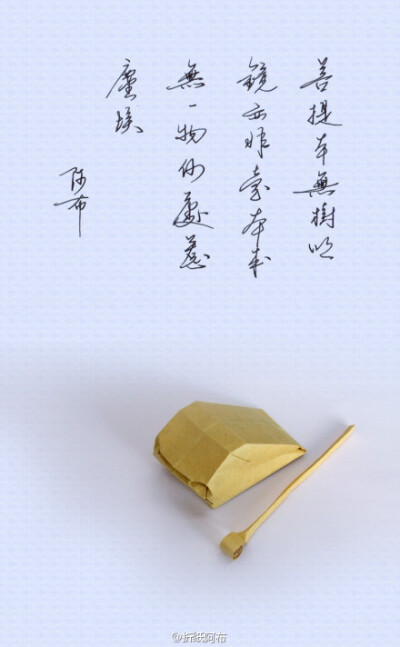 菩提本無樹明
鏡亦非臺本來
無一物何處惹
塵埃
阿布
@折纸阿布